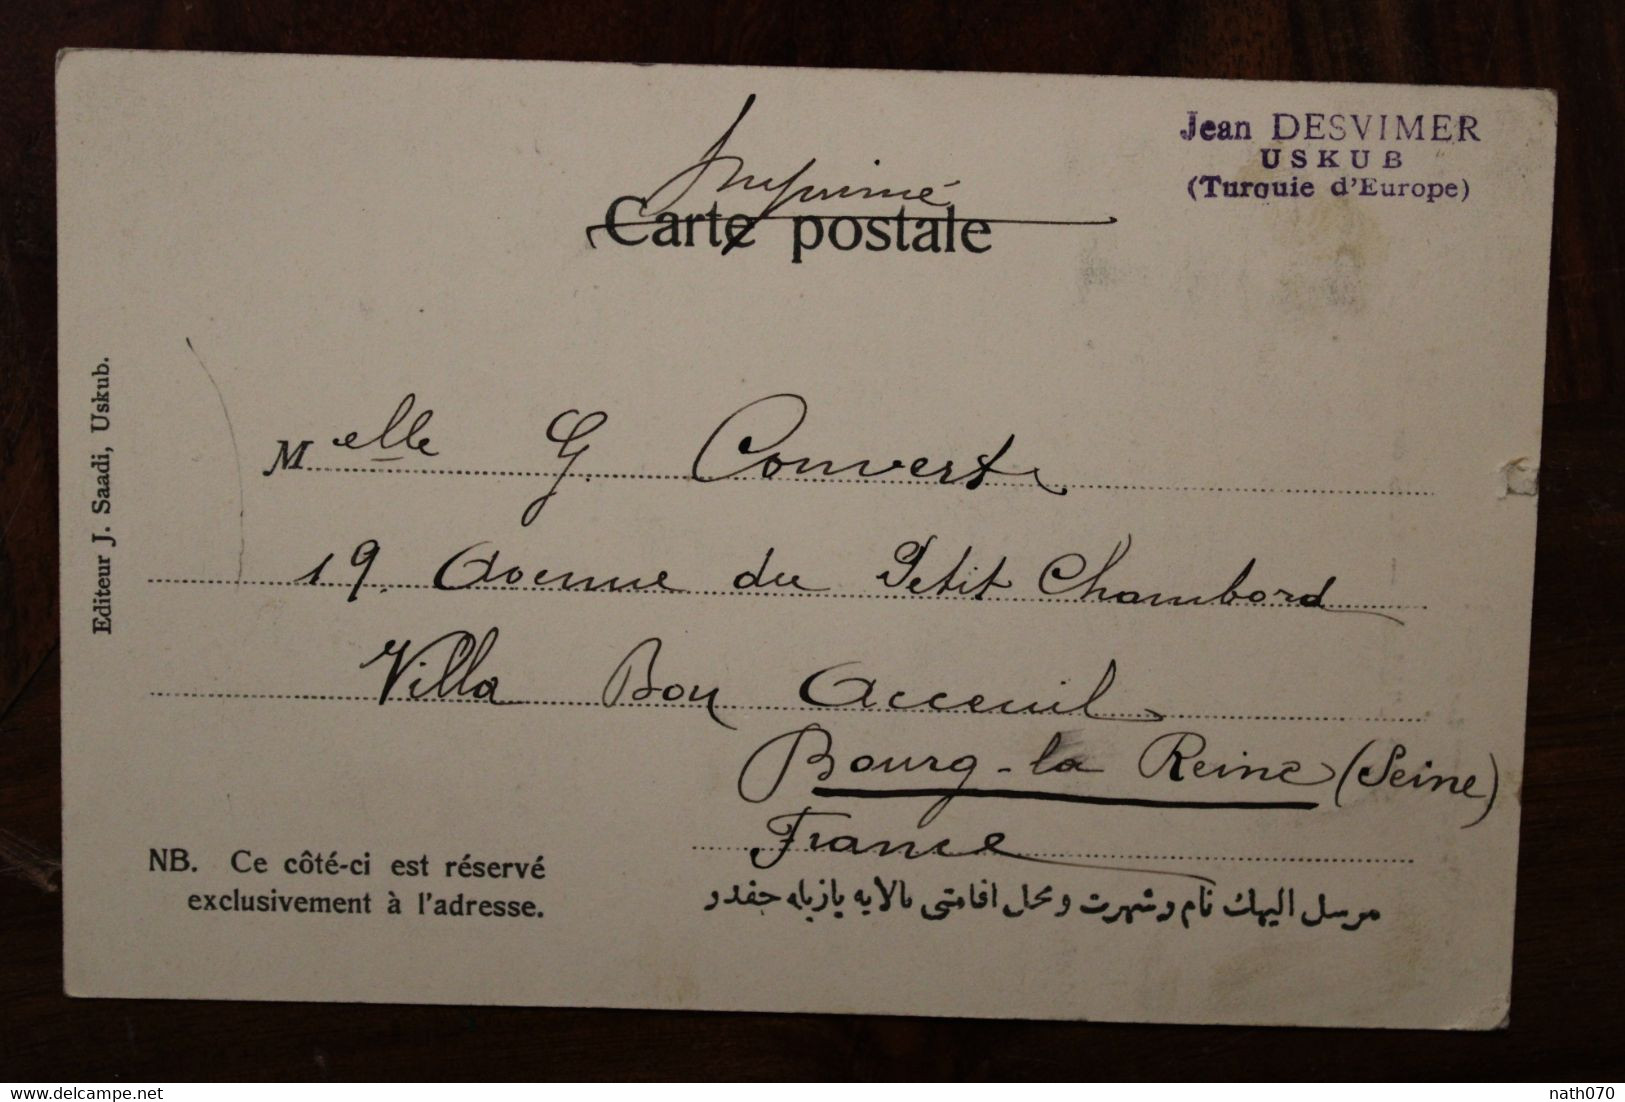 Jean DESVIMER
USKUB
(Turquie d'Europe)
Imprimé
Carte postale
Editeur J. Saadi, Uskub.
Melle G. Convert
19. Avenue du Petit Chambord
Villa Bon Acceuil
Bourg-la Reine (Seine)
France
NB. Ce côté-ci est réservé
exclusivement à l'adresse.
مرسل اليهك نام و شهرت و محل اقامتى بالايه يازيله جقدر
delcampe.net
nath070